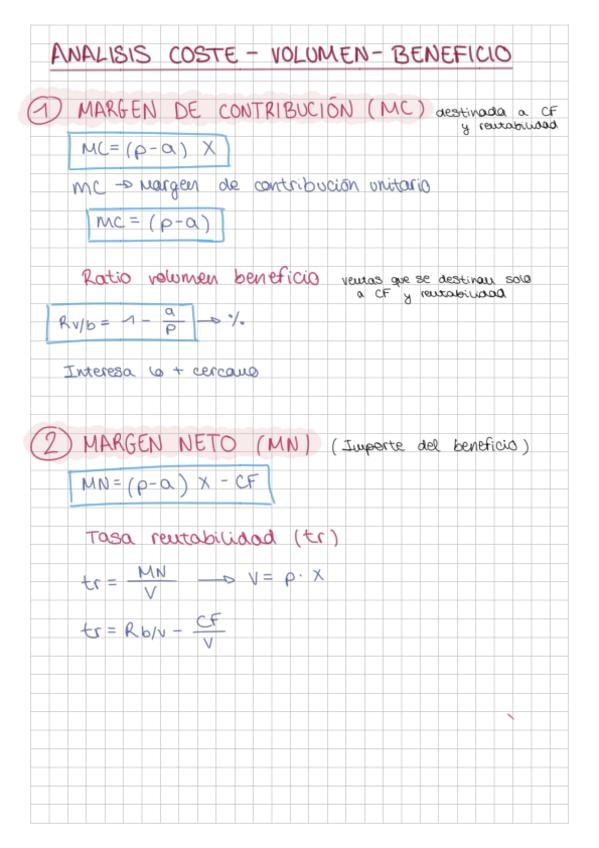 ANALISIS COSTE - VOLUMEN - BENEFICIO
1 MARGEN DE CONTRIBUCIÓN (MC) destinada a CF
y rentabilidad
MC = (p-a) X
mc → Margen de contribución unitario
mc = (p-a)
Ratio volumen beneficio ventas que se destinan solo
a CF y rentabilidad
Rv/b = 1 - a/p → %
Interesa lo + cercano
2 MARGEN NETO (MN) (Importe del beneficio)
MN = (p-a) X - CF
Tasa rentabilidad (tr)
tr = MN/V → V = p · X
tr = Rb/v - CF/V